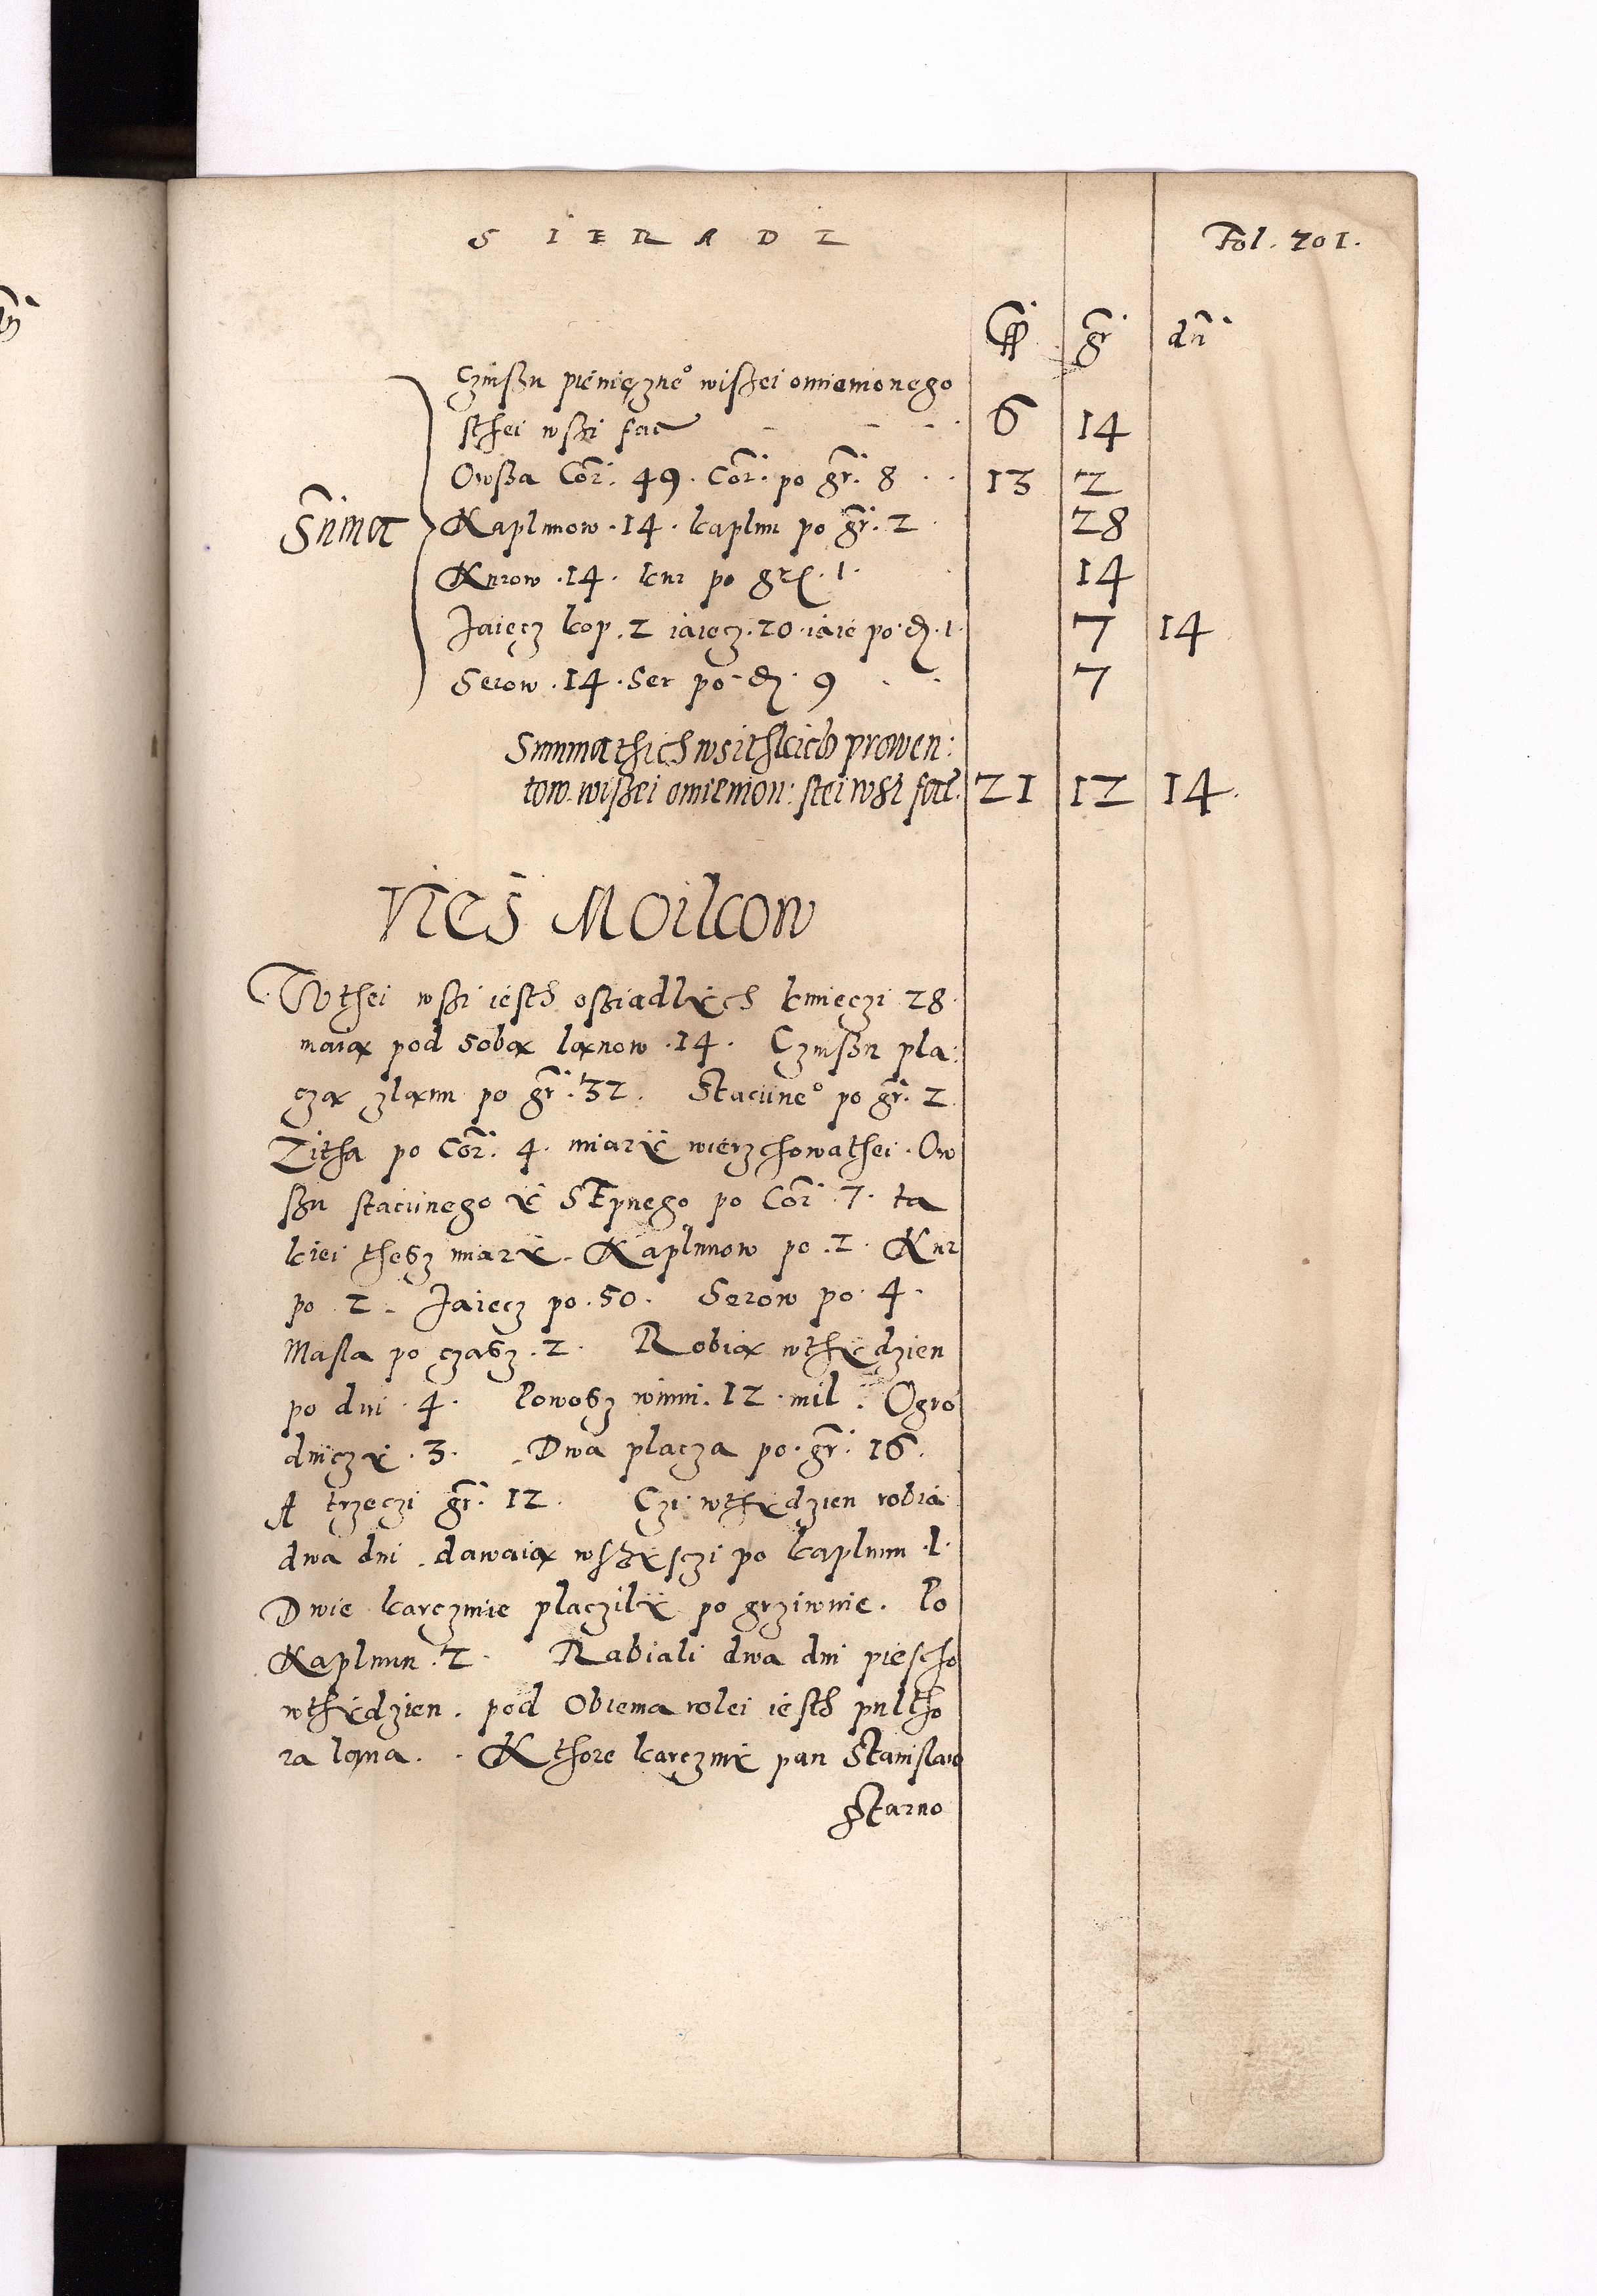 SIERADZ
Fol. 201.
gr dn
Czinsßu pieniężne° wißei omienionego
sthei wßi fac 6 14
Owßa Cor. 49. Cor. po gr. 8 13 2
Suma Kaplunow .14. kaplun po gr. 2 28
Kurow .14. kur po gr. 1. 14
Jaiecz kop. 2 iaiecz. 20. iaie po d. 1. 7 14
Serow .14. Ser po d. 9 7
Summa thich wsithkich prowen:
tow wißei omienion: stei wsi fac. 21 12 14.
Wies Moikow
W thei wßi iesth oßiadlÿch kmieczi 28.
maią pod sobą lanow .14. Czinßu pla:
czą zlanu po gr. 32. Staciine° po gr. 2
Zitha po Cor. 4. miarÿ wierzchowathei. Ow
ßu staciinego ÿ Sepnego po Cor. 7. ta
kiei thesz miarÿ. Kaplunow po .2. Kur
po 2. Jaiecz po .50. Serow po 4.
Masla po czasz .2. Robią wthÿdzien
po dni .4. Powosz winni .12. mil. Ogro
dniczÿ .3. Dwa placza po. gr. 16.
A trzeczi gr. 12. Czi wthÿdzien robia
dwa dni. dawaią wszÿsczi po kaplunu .1.
Dwie karczmie placzilÿ po grziwnie. Po
Kaplunu .2. Rabiali dwa dni piescho
wthÿdzien. pod Obiema rolei iesth pultho
ra lana. Kthore karczmÿ pan Stanislaw
Starno